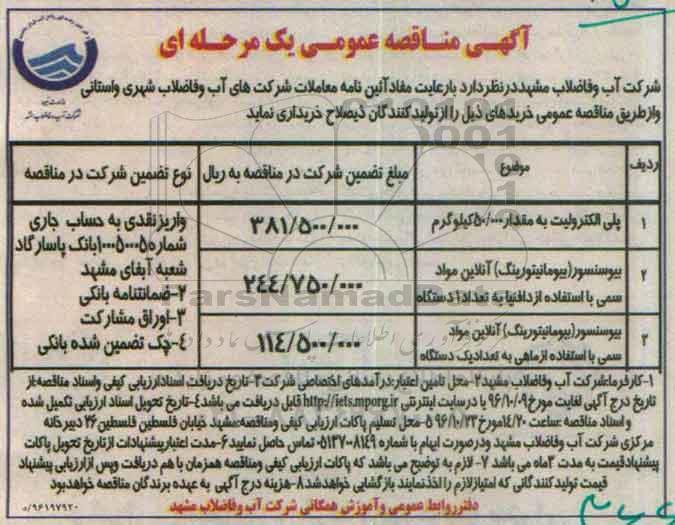 آگهی مناقصه عمومی یک مرحله ای
شرکت آب وفاضلاب مشهددرنظردارد بارعایت مفادآئین نامه معاملات شرکت های آب وفاضلاب شهری واستانی
وازطریق مناقصه عمومی خریدهای ذیل راازتولیدکنندگان ذیصلاح خریداری نماید
شرکت آب وفاضلاب مشهد
ردیف موضوع مبلغ تضمین شرکت در مناقصه به ریال نوع تضمین شرکت در مناقصه
۱ پلی الکترولیت به مقدار۵۰/۰۰۰کیلوگرم ۳۸۱/۵۰۰/۰۰۰
۲ بیوسنسور(بیومانیتورینگ) آنلاین مواد
سمی با استفاده ازدافنیا به تعداد۱دستگاه ۲۴۴/۷۵۰/۰۰۰
۳ بیوسنسور(بیومانیتورینگ) آنلاین مواد
سمی با استفاده ازماهی به تعدادیک دستگاه ۱۱۴/۵۰۰/۰۰۰
واریزنقدی به حساب جاری
شماره۱۰۰۵۰۰۰۵بانک پاسارگاد
شعبه آبفای مشهد
۲-ضمانتنامه بانکی
۳-اوراق مشارکت
۴-چک تضمین شده بانکی
ParsNamadData
۱-کارفرما:شرکت آب وفاضلاب مشهد۲-محل تامین اعتبار:درآمدهای اختصاصی شرکت۳-تاریخ دریافت اسنادارزیابی کیفی واسناد مناقصه:از
تاریخ درج آگهی لغایت مورخ۹۶/۱۰/۰۹ یا درسایت اینترنتی http://iets.mporg.ir قابل دریافت می باشد۴-تاریخ تحویل اسناد ارزیابی تکمیل شده
و اسناد مناقصه :ساعت ۱۴/۲۰مورخ ۹۶/۱۰/۲۳ ۵-محل تسلیم پاکات ارزیابی کیفی ومناقصه:مشهد خیابان فلسطین فلسطین۲۶ دبیرخانه
مرکزی شرکت آب وفاضلاب مشهد ودرصورت ابهام با شماره ۰۵۱۳۷۰۰۸۱۴۹ تماس حاصل نمایید۶-مدت اعتبارپیشنهادات ازتاریخ تحویل پاکات
پیشنهادقیمت به مدت ۳ماه می باشد ۷- لازم به توضیح می باشد که پاکات ارزیابی کیفی ومناقصه همزمان با هم دریافت وپس ازارزیابی پیشنهاد
قیمت تولیدکنندگانی که امتیازلازم رااخذنمایند بازگشایی خواهدشد۸-هزینه درج آگهی به عهده برندگان مناقصه خواهدبود
دفترروابط عمومی وآموزش همگانی شرکت آب وفاضلاب مشهد
۹۶۱۹۷۹۲۰/